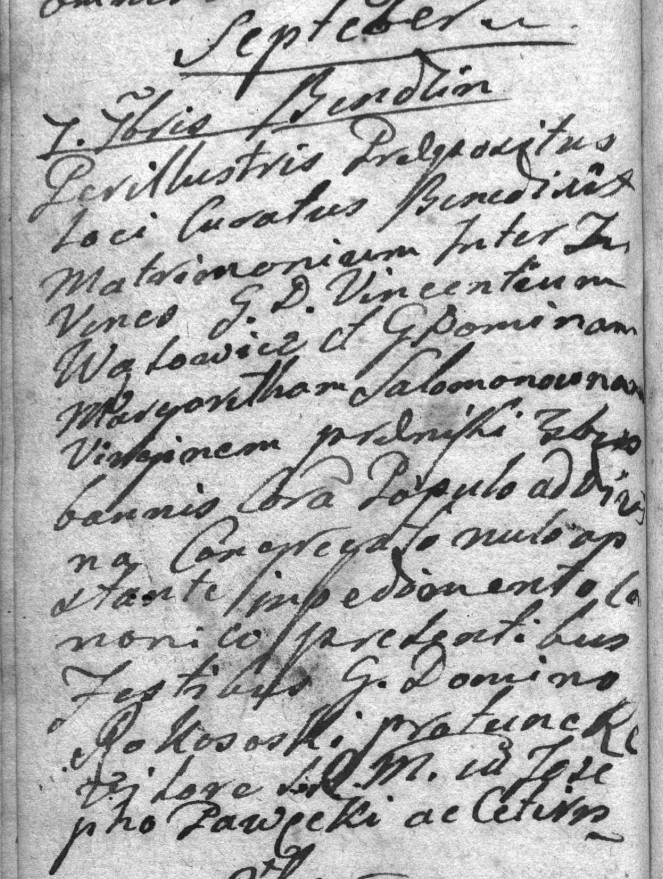 Septeber
7. 7bris Bendlin
Perillustris Prepositus
Loci Curatus Benedixit
Matrimonium Inter Iu
venes G. D. Vincentium
Wąsowicz et G Dominam
Margaretham Salomonownam
Virginem premissis 3bus
bannis Cora Populo ad Divi
na Congregato nulo op
stante impedimento Ca
nonico presentibus
Testibus G. Domino
Rokososki protunc
M. cu Jose
pho Pawęcki ac Ceteris